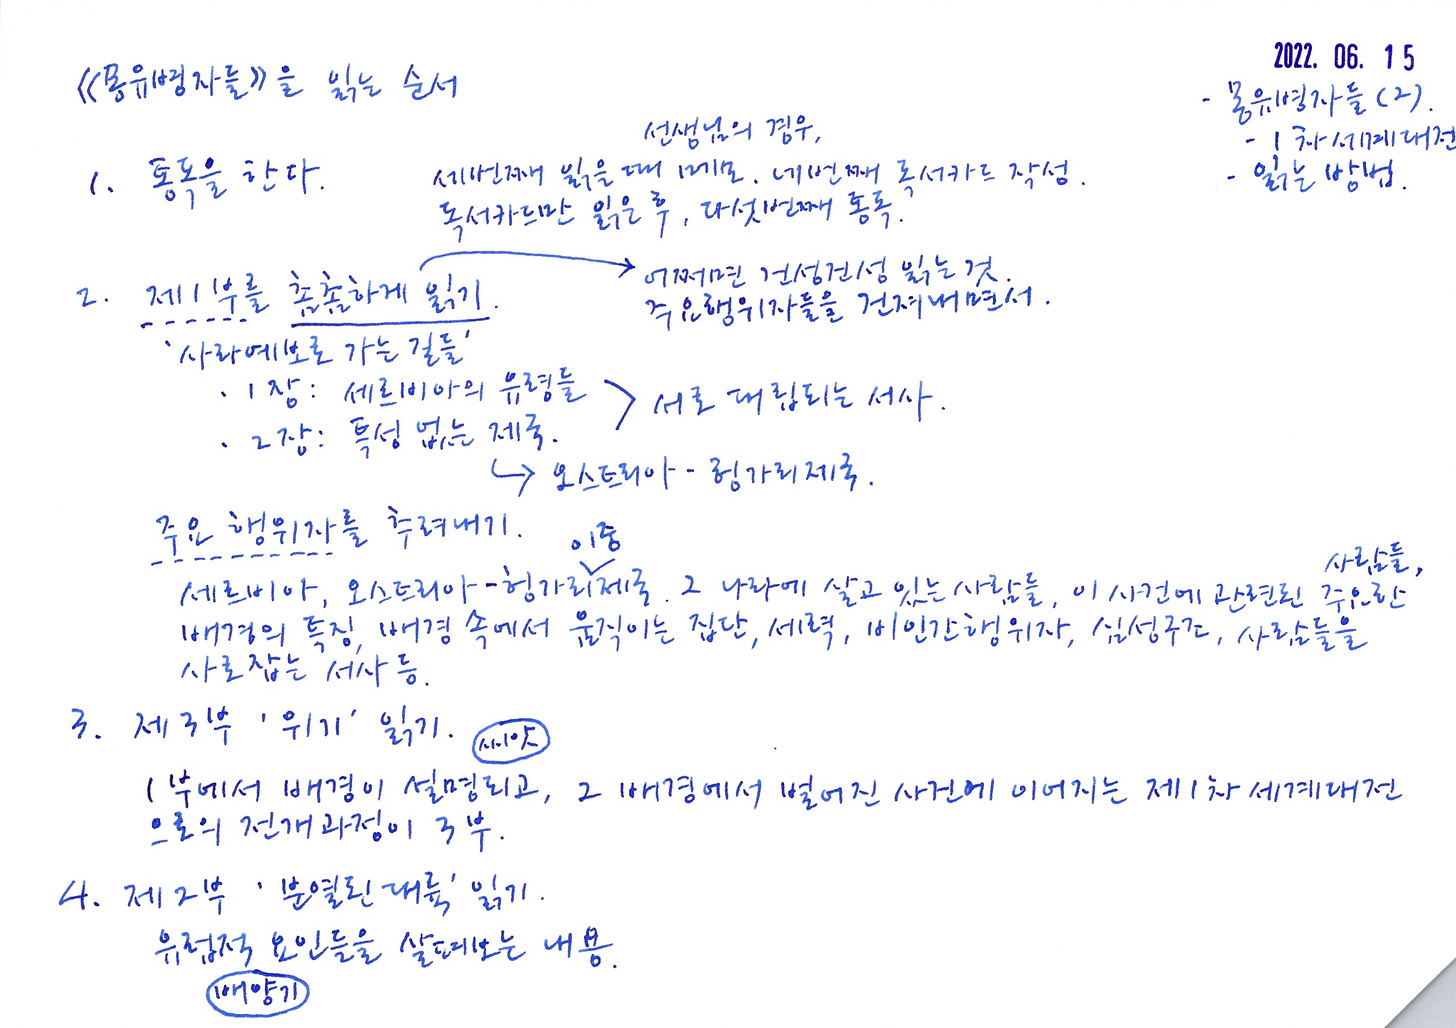 2022. 06. 15
- 몽유병자들 (2).
- 1차세계대전
- 읽는 방법.
《몽유병자들》을 읽는 순서
1. 통독을 한다.
선생님의 경우,
세번째 읽을 때 메모. 네번째 독서카드 작성.
독서카드만 읽은 후, 다섯번째 통독.
2. 제1부를 촘촘하게 읽기.
어쩌면 건성건성 읽는 것.
주요행위자들을 건져내면서.
'사라예보로 가는 길들'
· 1장: 세르비아의 유령들
· 2장: 특성 없는 제국.
서로 대립되는 서사.
오스트리아 - 헝가리제국.
주요 행위자를 추려내기.
이중
사람들,
세르비아, 오스트리아-헝가리제국. 그 나라에 살고 있는 사람들, 이 사건에 관련된 주요한
배경의 특징, 배경 속에서 움직이는 집단, 세력, 비인간행위자, 심성구조, 사람들을
사로잡는 서사 등.
3. 제3부 '위기' 읽기.
씨앗
1부에서 배경이 설명되고, 그 배경에서 벌어진 사건에 이어지는 제1차세계대전
으로의 전개과정이 3부.
4. 제2부 '분열된 대륙' 읽기.
유럽적 요인들을 살펴보는 내용.
배양기